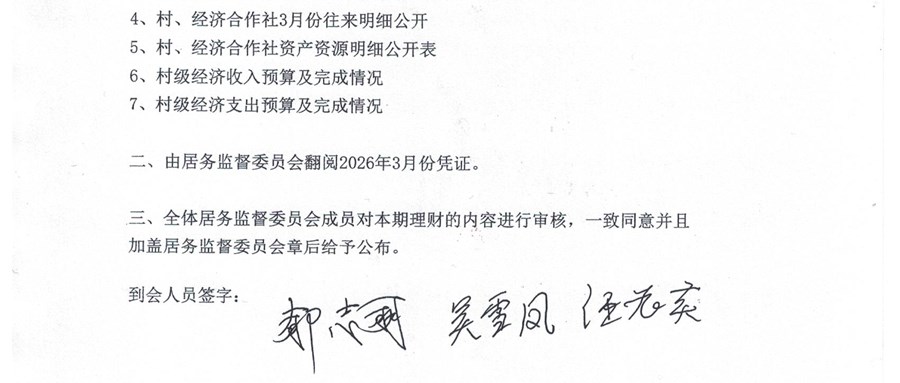 4、村、经济合作社3月份往来明细公开
5、村、经济合作社资产资源明细公开表
6、村级经济收入预算及完成情况
7、村级经济支出预算及完成情况
二、由居务监督委员会翻阅2026年3月份凭证。
三、全体居务监督委员会成员对本期理财的内容进行审核，一致同意并且
加盖居务监督委员会章后给予公布。
到会人员签字：
志 吴雪凤